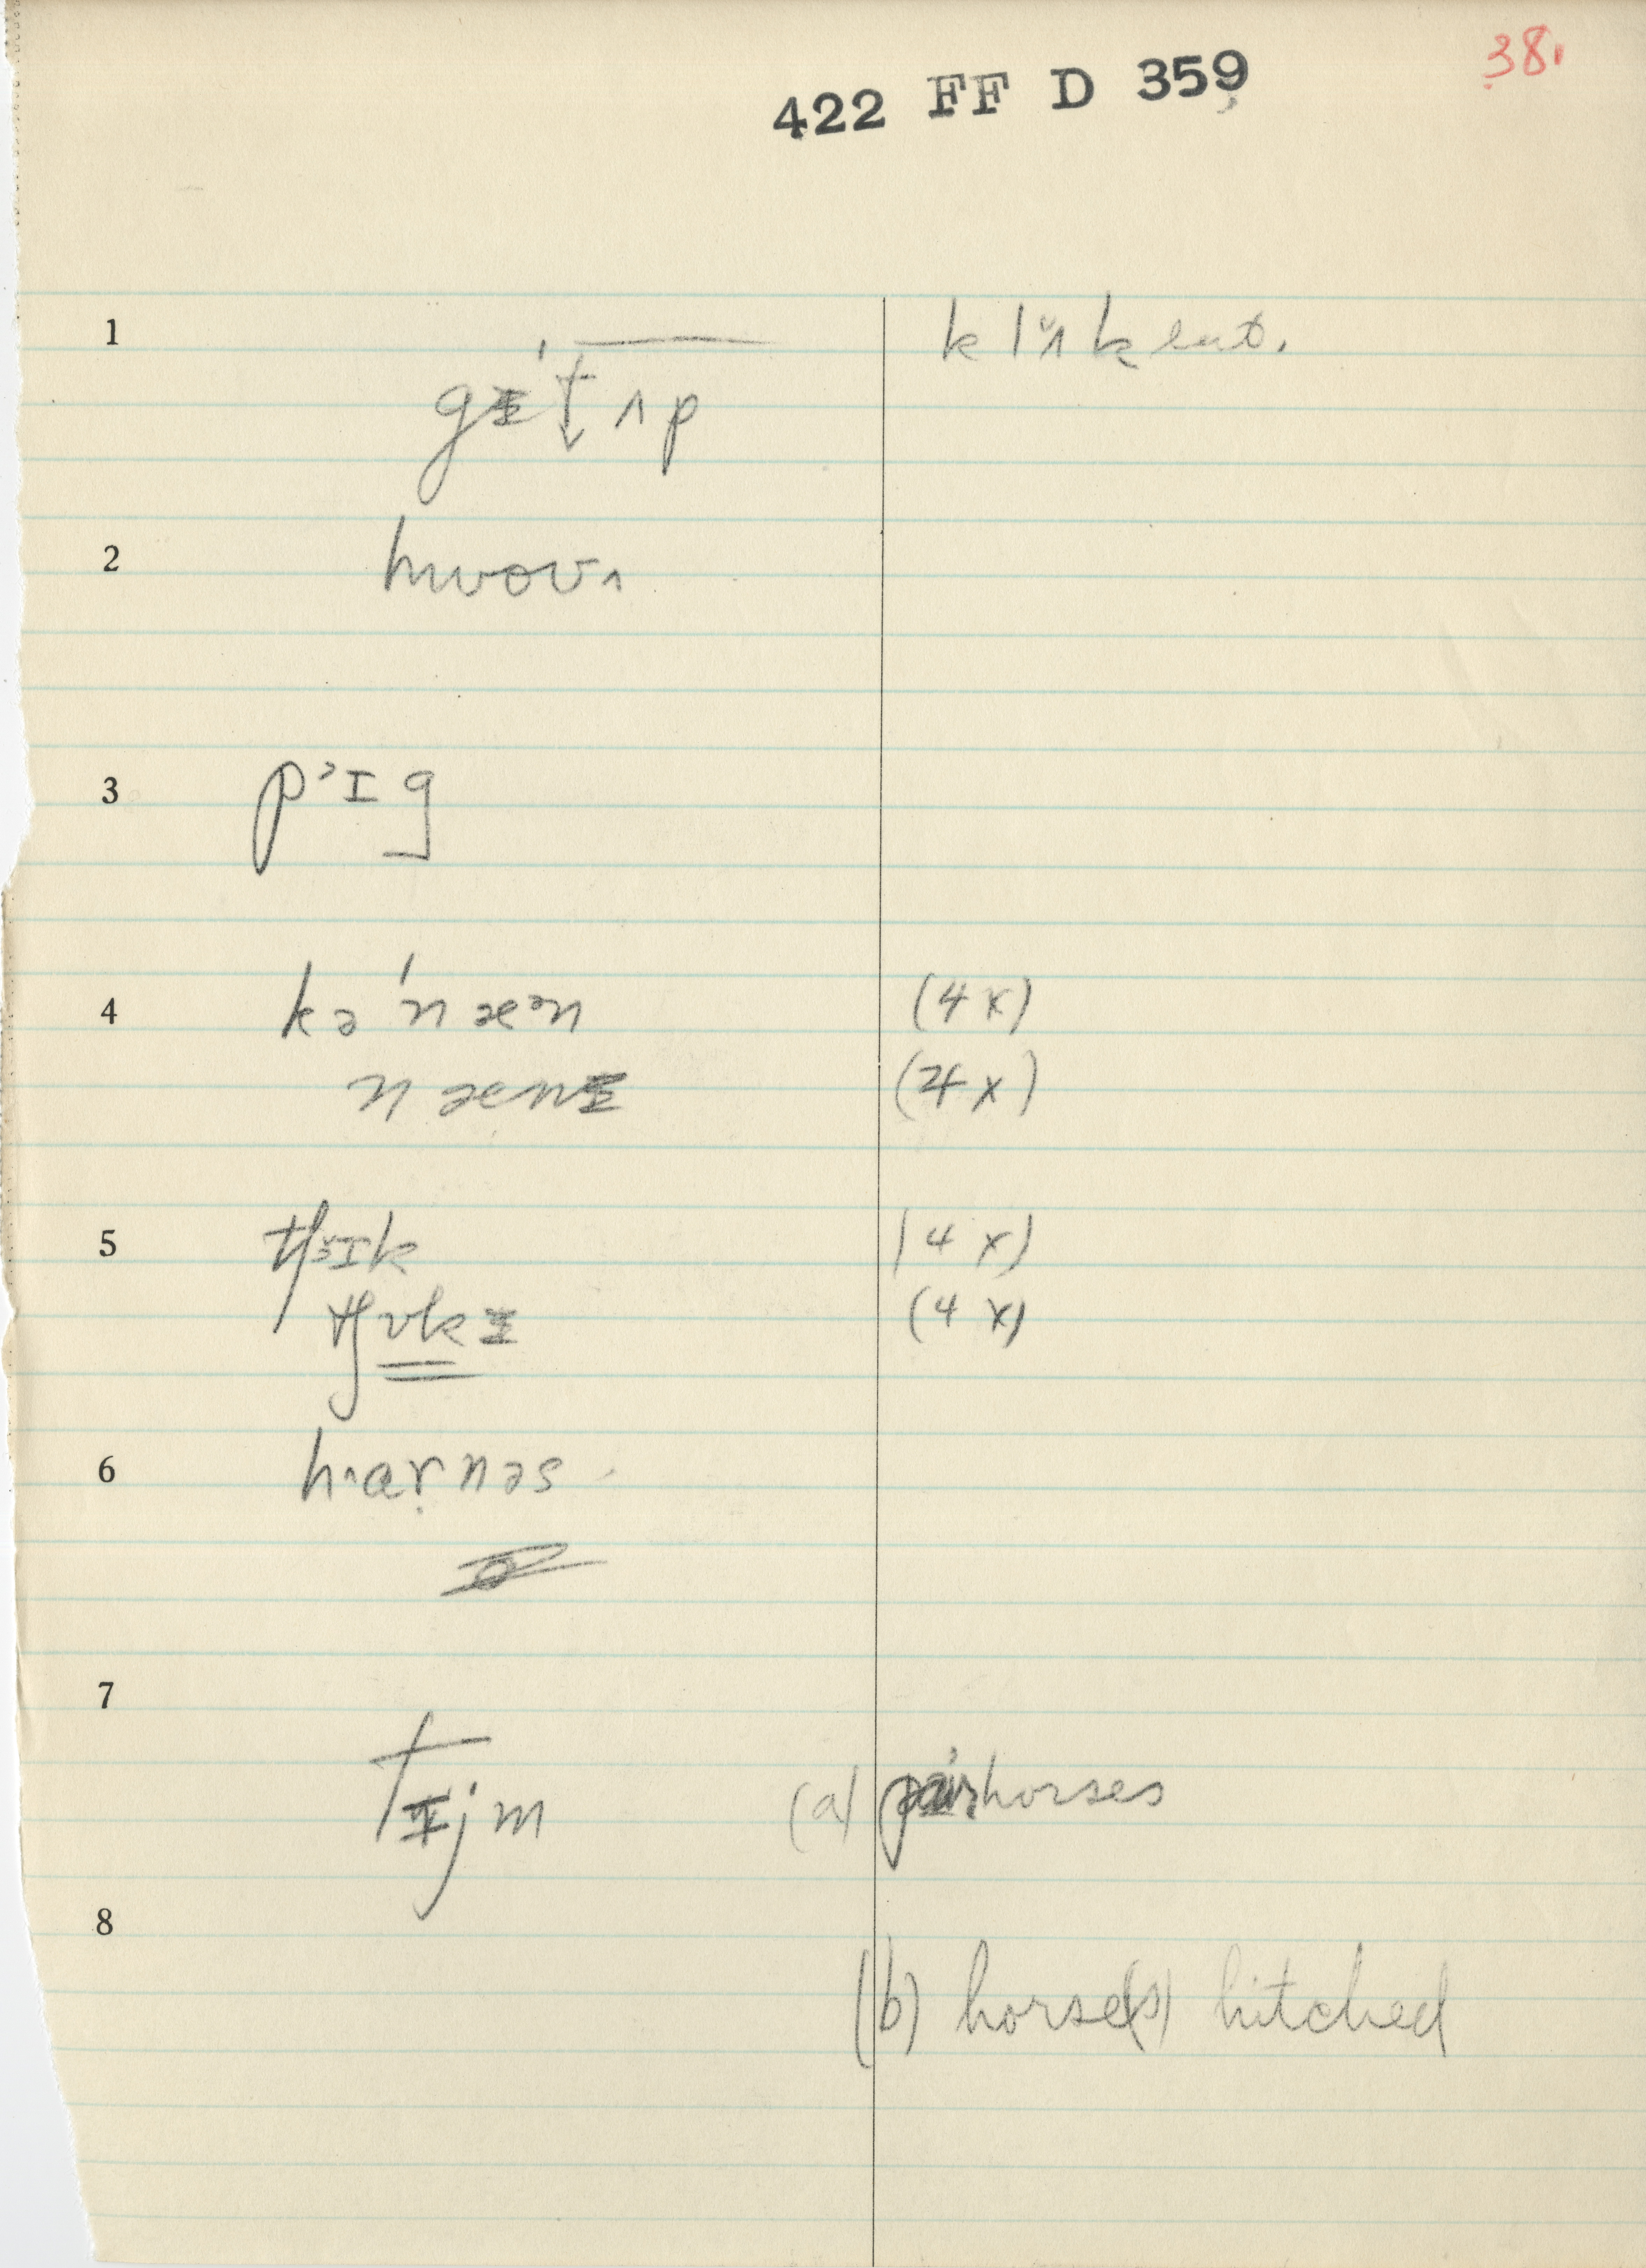 38.
422 FF D 359
1 gɪ't̬ʌp klʌ̆k lat.
2 hwoʊʌ
3 pᵊɪg
4 kə'næᵊn (4x)
nænɪ (4x)
5 tʃᵊ̆ɪk (4x)
tʃʊkɪ (4x)
6 hɑṛnəs
7 tɪjm (a) pair horses
8
(b) horse(s) hitched